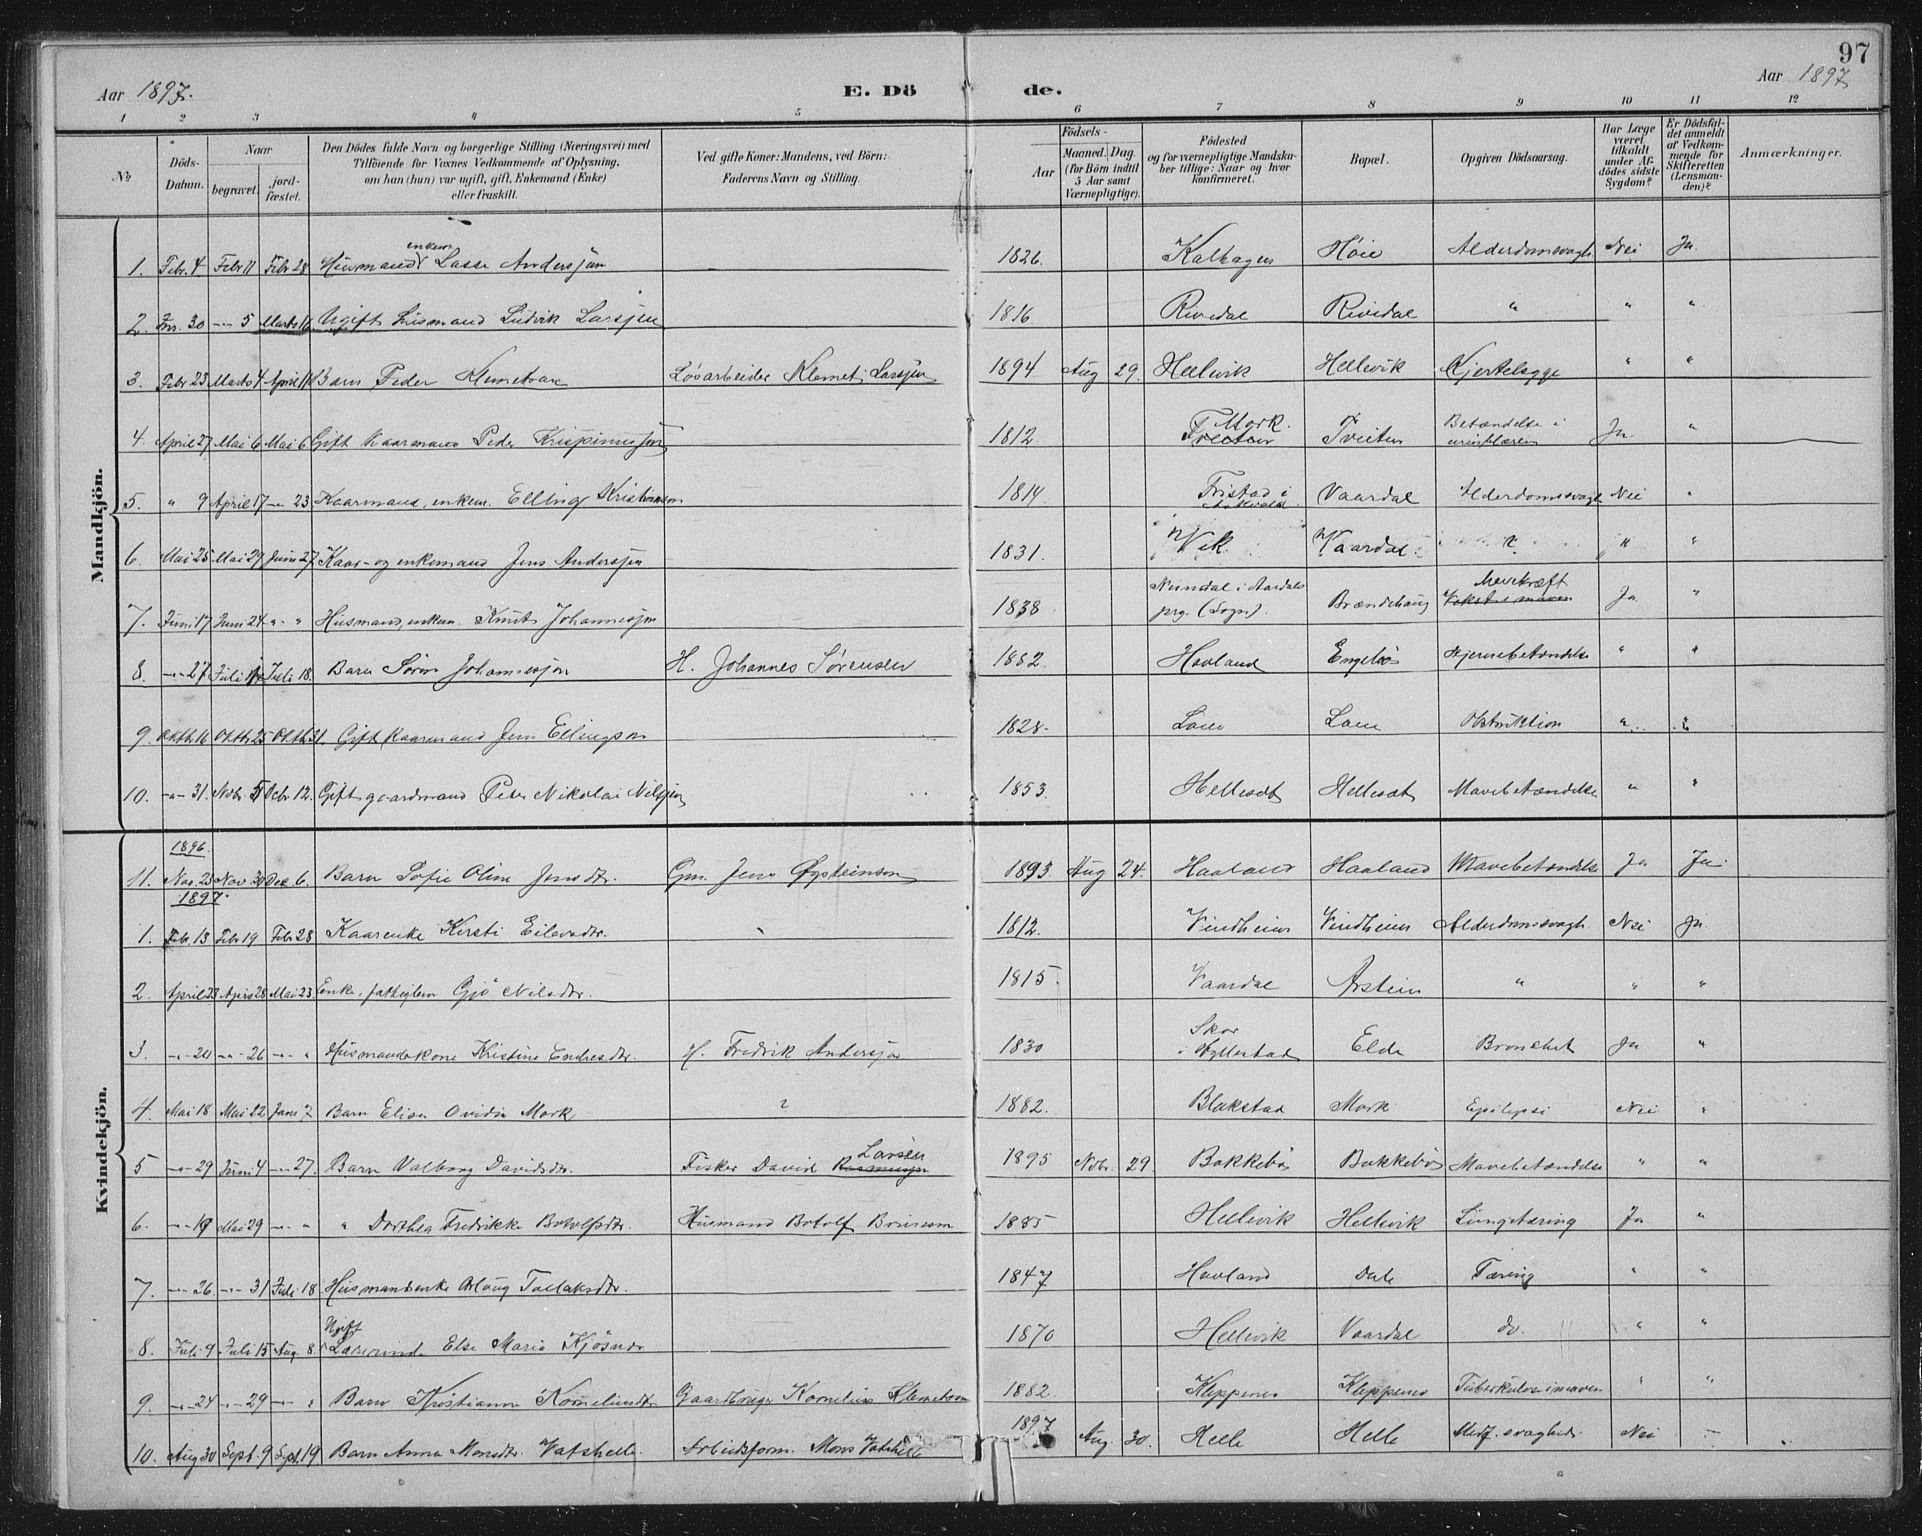 97
Aar 1897.
E. Dö
de.
Aar 1897
1 2 3 4 5 6 7 8 9 10 11 12
No
Döds-Datum.
Naar
begravet.
jord-fæstet.
Den Dödes fulde Navn og borgerlige Stilling (Næringsvei) med
Tilföiende for Voxnes Vedkommende af Oplysning,
om han (hun) var ugift, gift, Enkemand (Enke)
eller fraskilt.
Ved gifte Koner: Mandens, ved Börn:
Faderens Navn og Stilling.
Födsels-
Aar
Maaned. Dag.
(for Börn indtil
5 Aar samt
Værnepligtige).
Födested
og for værnepligtige Mandska-
ber tillige: Naar og hvor
konfirmeret.
Bopæl.
Opgiven Dödsaarsag.
Har Læge
været
tilkaldt
under Af-
dödes sidste
Sygdom?
Er Dödsfal-
det anmeldt
af Vedkom-
mende for
Skifteretten
(Lensman-
den)?
Anmærkninger.
Mandkjön.
1. Febr. 4 Febr 11 Febr 28 Husmand enkem Lasse Andersjøn 1826. Kalhagen Høie Alderdomsvagh. Nei Ja
2. Jnr. 30 -"- 5 Marts Ugift Husmand Ludvik Larsjen 1816 Rivedal Rivedal " " "
3. Febr 23 Marts 4 April 11 Barn Peder Klemetsøn Løsarbeider Klemet Larsjen 1894 Aug 29. Hellevik Hellevik Kjertelsyge " "
4. April 27 Mai 6 Mai 6 Gift Kaarmand Peder Krispinussjøn 1812 Mork. Tveiten Betændelse i urinblæren Ja "
5. " 9 April 17 -"- 23 Kaarmand, enkem. Elling Kristianson 1814 Tristad i Askvold. Vaardal Alderdomssvagh Nei "
6. Mai 25 Mai 29 Juni 27 Kaar- og enkemand Jens Andersjen 1831. Vik Vaardal " " "
7. Juni 17 Juni 24 -"- " Husmand, enkem. Knut Johannessjøn 1838 i Aardals prg. (Sogn). Brændehaug Mavekræft Ja "
8. -"- 27 Juli Juli 18. Barn Søren Johannessjøn H. Johannes Sørensen 1882. Havland Engebø Hjernebetændelse " "
9. Okth. 16 Okth 25 Okth 31. Gift Kaarmand Jens Ellingson 1828. Lone Lone Obstruktion " "
10. -"- 31. Novbr 5 Debr 12. Gift gaardmand Peter Nikolai Nilsjen 1853. Hellesæt Hellesæt Mavebetændelse " "
Kvindekjön.
1896.
11. Nov. 23 Nov 30 Dec 6. Barn Sofie Oline Jensdtr. Gm. Jens Øysteinson 1893. Aug 24. Haaland Haaland Mavebetændelse Ja Ja
1897.
1. Febr. 13 Febr 19 Febr 28 Kaarenke Kersti Eilevsdtr. 1812. Vindheim Vindheim Alderdomsvagh Nei Ja
2. April 23 April 28 Mai 23. Enke, fattiglem Gjø Nilsdtr. 1815. Vaardal Arstein " " "
3. -"- 20 -"- 26 -"- " Husmandskone Kristine Endresdtr. H. Fredrik Andersjøn 1830 Skor i Hyllestad Elde Bronchit Ja "
4. Mai 18 Mai 22 Juni 7 Barn Elisa Ovidia Mork ? 1882. Blakstad Mork Epilepsi Nei "
5 -"- 29 Juni 4 -"- 27. Barn Valborg Davidsdtr. Fisker David Larsen Rasmusjen 1895 Nvbr. 29. Bakkebø Bakkebø Mavebetændelse " "
6. -"- 19 Mai 29 -"- " " Dorthea Fredrikke Botolfsdtr. Husmand Botolf 1885 Hellevik Hellevik Lungetæring Ja "
7. -"- 26. -"- 31 Juli 18 Husmandsenke Tollaksdtr. 1847 Havland Dale Tæring " "
8. Juli 9 Juli 15 Aug. 8 Ugift Lærerinde Else Maria Kjøsnes 1870 Hellevik Vaardal do. " "
9. -"- 24 -"- 29 -"- " Barn Kristianna Korneliusdtr Gaardbruger Kornelius Klemetson 1882. Kleppenes Kleppenes Tuberkulose i maven " "
10. Aug 30 Sept. 9 Sept. 19 Barn Anna Monsdtr. Vatshelle. Arbeidsform. Mons Vatshelle 1897 Aug 30. Helle Helle Medf. svaghed Nei –